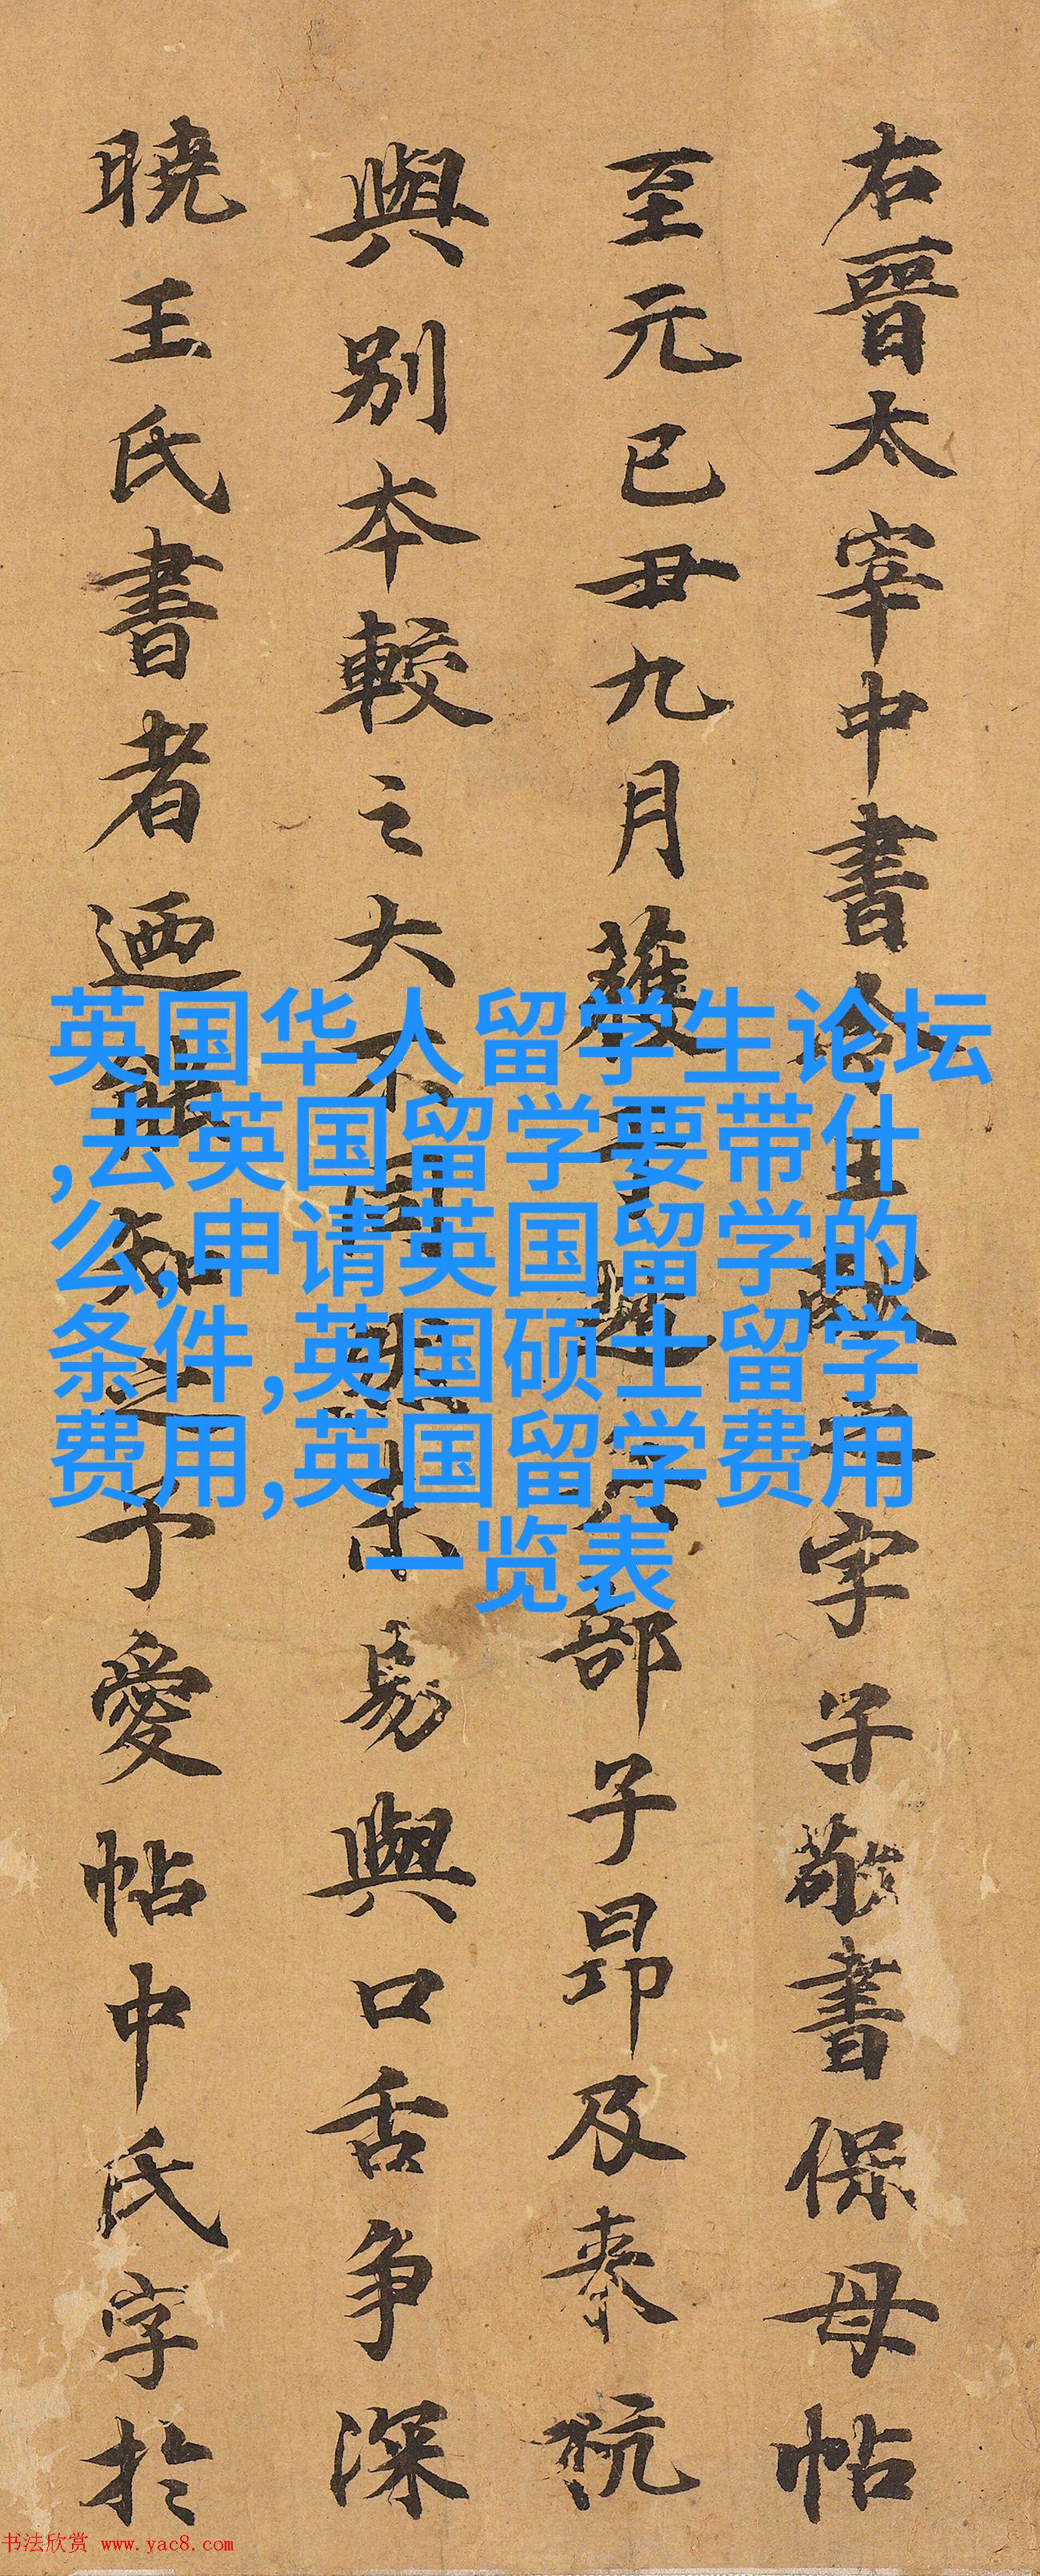 右晉太宰中書令王獻之字子敬書保母帖
至元己丑九月獲于趙兵部子昂及来杭
與别本較之大不同然未易與口舌争深
曉王氏書者迺能知之予愛帖中氏字於
英国华人留学生论坛
,去英国留学要带什
么,申请英国留学的
条件,英国硕士留学
费用,英国留学费用
一览表
书法欣赏 www.yac8.com